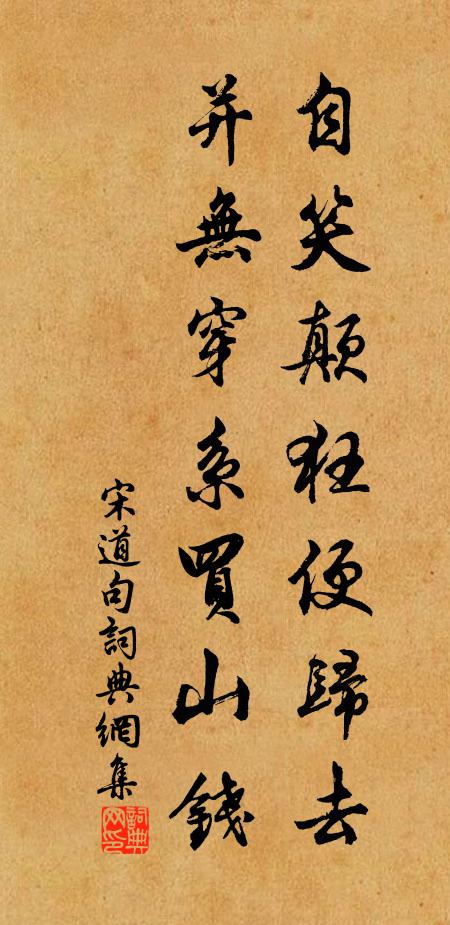 自笑顛狂便歸去
并無穿系買山錢
宋道句詞典網集
詞典網印